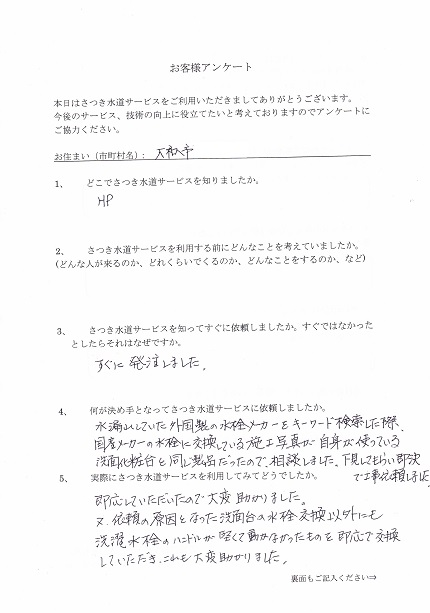 お客様アンケート
本日はさつき水道サービスをご利用いただきましてありがとうございます。
今後のサービス、技術の向上に役立てたいと考えておりますのでアンケートに
ご協力ください。
お住まい（市町村名）： 大和市
1、 どこでさつき水道サービスを知りましたか。
HP
2、 さつき水道サービスを利用する前にどんなことを考えていましたか。
(どんな人が来るのか、どれくらいでくるのか、どんなことをするのか、など)
3、 さつき水道サービスを知ってすぐに依頼しましたか。すぐではなかった
としたらそれはなぜですか。
すぐに発注しました。
4、 何が決め手となってさつき水道サービスに依頼しましたか。
水漏れしていた外国製の水栓メーカーをキーワード検索した際、
国産メーカーの水栓に交換している施工写真が自身が使っている
洗面化粧台と同じ製品だったので、相談しました。下見してもらい即決
で工事依頼しました
5、 実際にさつき水道サービスを利用してみてどうでしたか。
即応していただいたので大変助かりました。
又、依頼の原因となった洗面台の水栓交換以外にも
洗濯水栓のハンドルが堅くて動かなかったものを即応で交換
していただき、これも大変助かりました。
裏面もご記入ください⇒